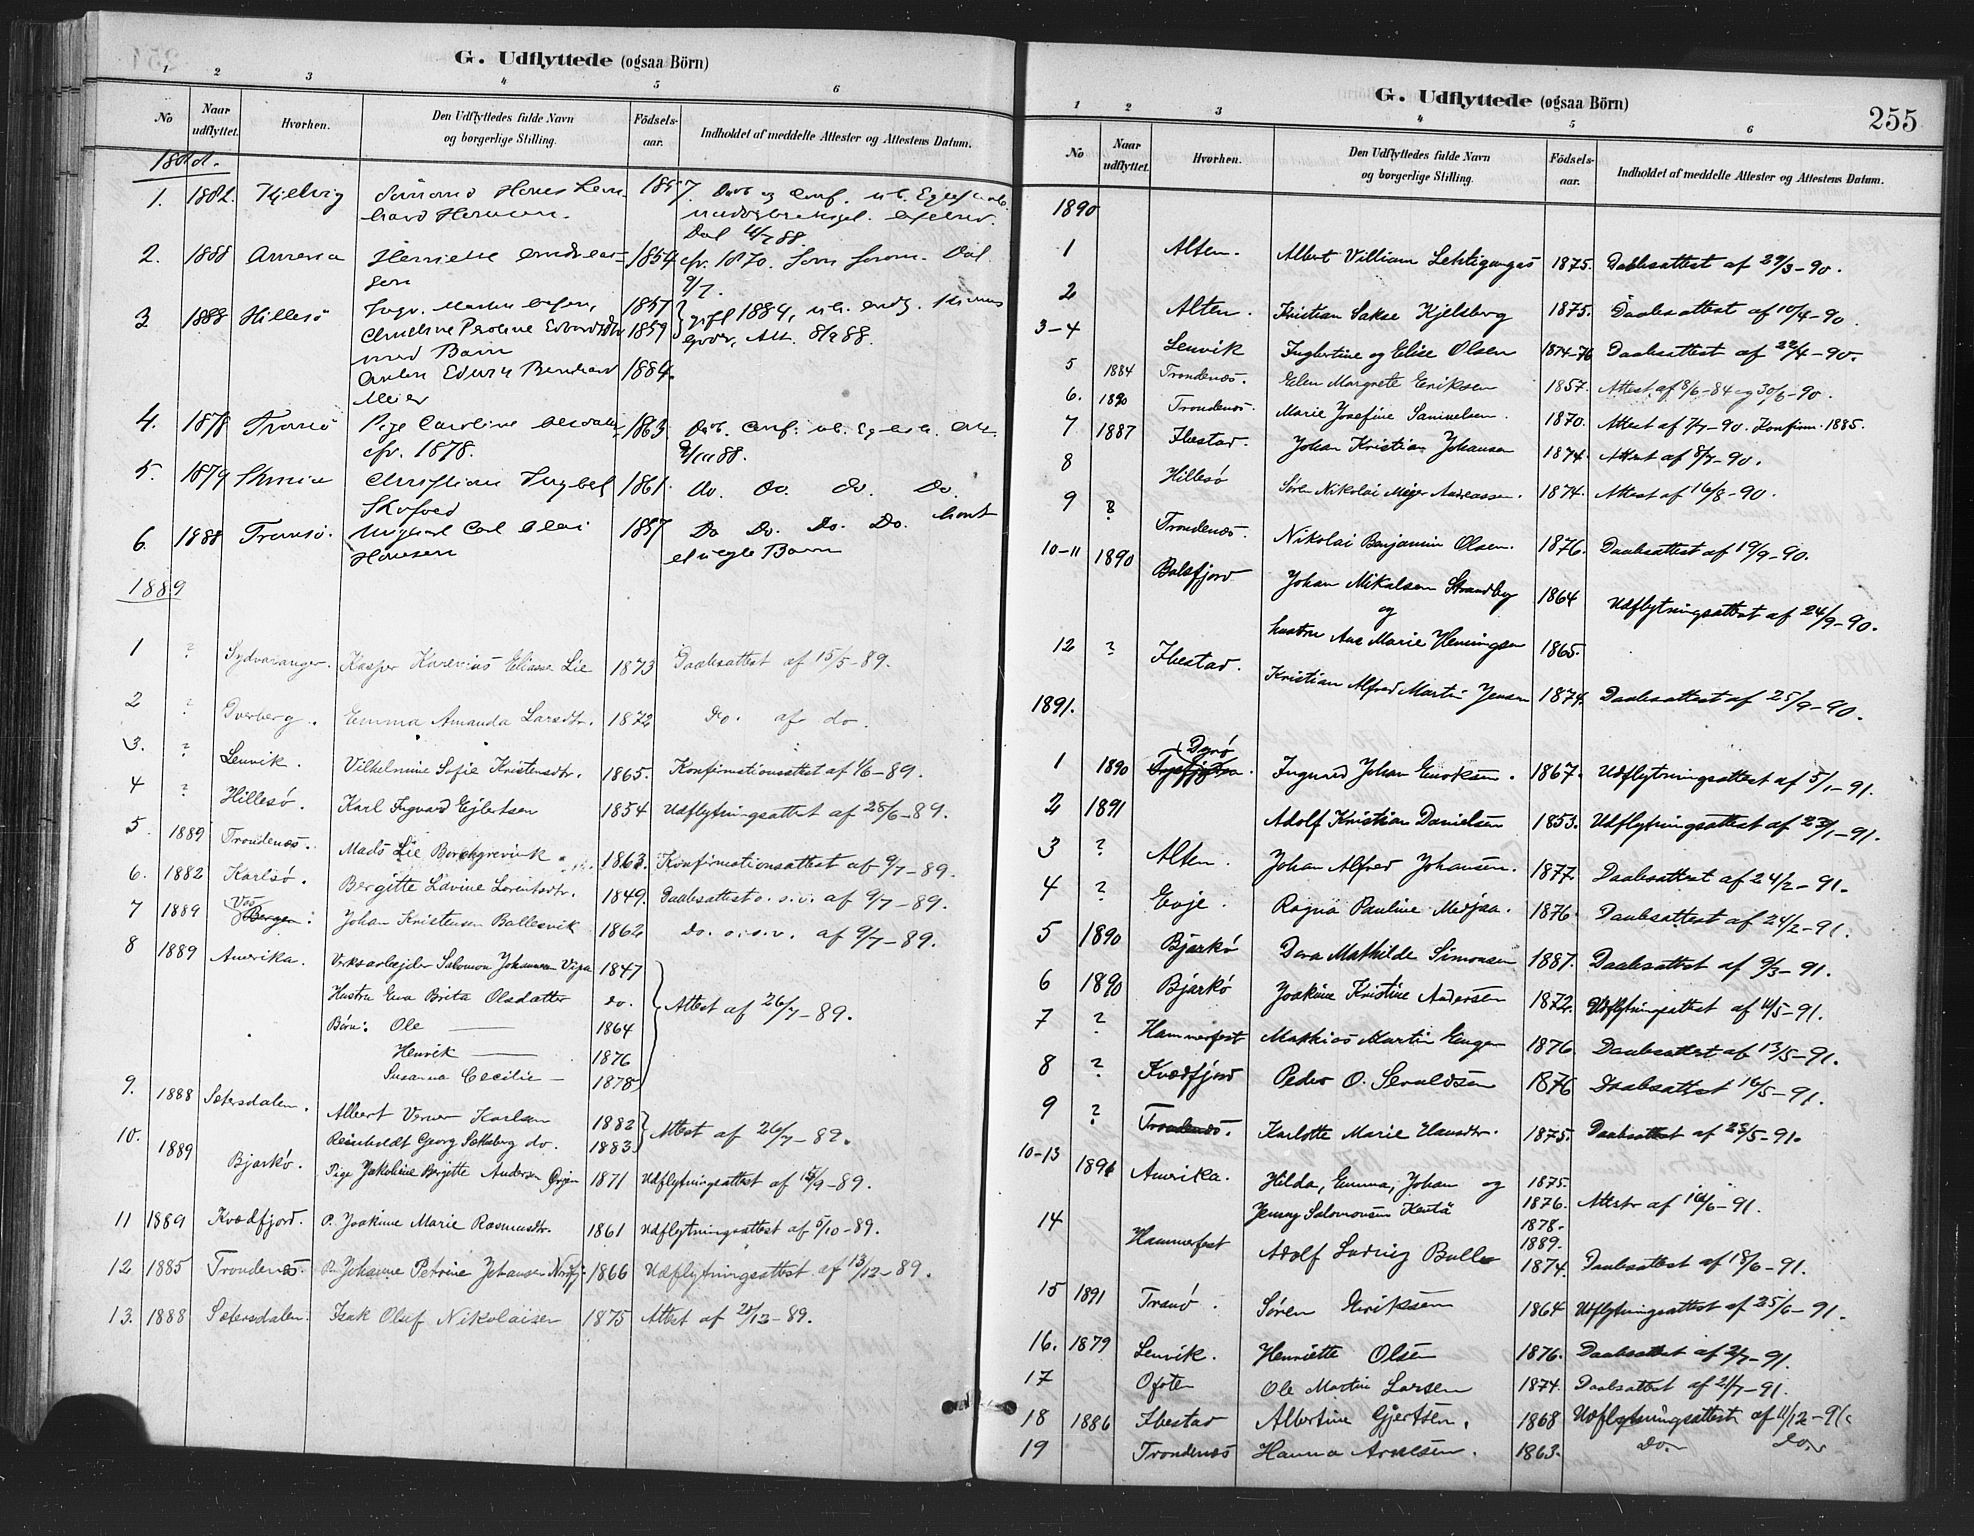 G. Udflyttede (ogsaa Börn)
1 2 3 4 5 6
No Naar udflyttet. Hvorhen. Den Udflyttedes fulde Navn og borgerlige Stilling. Födsels-aar. Indholdet af meddelte Attester og Attestens Datum.
1. 1882. Kjelvig
2. 1888 1854 cfr. 1870. Dal
3 1888 Hillesö 1857
1859 gift 1884
med Barn
1884.
Meier
4. 1878 Tromsö Pige Caroline 1863
cfr. 1878.
5. 1879 1861. Do. Do. Do. Do.
6. 1888 Tromsö. Carl 1857 Do Do. Do. Do.
Hansen Barn
1889
1 ? Sydvaranger. Kasper Eliasen Lie 1873 Daabsattest af 15/5-89.
2 ? Dverberg. Emma Amanda Larsdtr. 1872 Do. af do.
3. ? Lenvik. Vilhelmine Sofie Kristensdtr. 1865. Konfirmationsattest af 1/6-89.
4 ? Hillesø. Karl Ingvard Ejlertsen 1854 Udflytningsattest af 28/6-89.
5. 1889 Trondenæs. Mads Lie Borchgrevink 1863. Konfirmationsattest af 9/7-89.
6. 1882 Karlsø. Bergitte Lavine Lorentsdtr. 1849. Daabsattest o.s.v. af 9/7-89.
7 1889 Bergen: Johan Kristensen Ballesvik 1862 Do. o.s.v. af 9/7-89.
8 1889 Amerika. Verksarbejder Salomon Johannesen Vipa 1847
Hustru Eva Brita Olsdatter do. Attest af 26/7-89.
Børn: Ole — 1864
Henrik — 1876
Susanna Cecilie — 1878
9. 1888 Sætersdalen. Albert Verner Karlsen 1882
Reinholdt Georg Seltsberg do. 1883 Attest af 26/7-89.
10. 1889 Bjarkø. Pige Jakobine Bergitte Andersen 1871 Udflytningsattest af 15/9-89.
11 1889 Kvædfjord. P. Joakime Marie Rasmusdtr. 1861 Udflytningsattest af 5/10-89.
12 1885 Trondenæs. P. Johanne Petrine Johansen 1866 Udflytningsattest af 13/12-89.
13. 1888 Sætersdalen. Isak Olsef Nikolaisen 1875 Attest af 28/12-89.
G. Udflyttede (ogsaa Börn)
255
1 2 3 4 5 6
No Naar udflyttet. Hvorhen. Den Udflyttedes fulde Navn og borgerlige Stilling. Födsels-aar. Indholdet af meddelte Attester og Attestens Datum.
1890
1 Alten. Albert Villiam Lehtigangas 1875. Daabsattest af 29/3-90.
2 Alten. Kristian Sakse Kjelsberg 1875. Daabsattest af 10/4-90.
3-4 Lenvik Ingbertine og Elise Olsen 1874-76 Daabsattest af 22/4-90.
5 1884 Trondenæs. Elen Margrete Eriksen 1857. Attest af 8/6-84 og 30/6-90.
6. 1890 Trondenæs. Marie Josefine Samuelsen. 1870. Attest af 7/7-90. Konfirm. 1885.
7 1887 Ibestad. Johan Kristian Johansen 1874. Attest af 8/7-90.
8 Hillesø Søren Nikolai Mejer Andreassen. 1874. Attest af 16/8-90.
9 ? Trondenæs. Nikolai Benjamin Olsen. 1876. Daabsattest af 19/9-90.
10-11 1890 Balsfjord Johan Mikalsen Strandby 1864 Udflytningsattest af 24/9-90.
og
hustru Ane Marie Henningsen 1865.
12 ? Ibestad. Kristian Alfred Martin Jensen 1874. Daabsattest af 25/9-90.
1891.
1 1890 Ingvard Johan Enoksen. 1867. Udflytningsattest af 5/1-91.
2 1891 Adolf Kristian Danielsen 1853. Udflytningsattest af 23/1-91.
3 ? Alten. Johan Alfred Johansen. 1877. Daabsattest af 24/2-91.
4 ? Evje. Ragna Pauline Medjaa. 1876. Daabsattest af 24/2-91.
5 1890 Bjarkö Dera Mathilde Simonsen 1887. Daabsattest af 9/3-91.
6 1890 Bjarkö Joakine Kristine Andersen 1872. Udflytningsattest af 11/5-91.
7 ? Hammerfest Mathias Martin Eugen 1876. Daabsattest af 13/5-91.
8 ? Kvædfjord Peder O. Sevaldsen 1876 Daabsattest 16/5-91.
9 ? Trondenæs. Karlotte Marie Hansdtr. 1875. Daabsattest af 25/5-91.
10-13 1891 Amerika. Hilda, Emma, Johan og 1875.
Jenny Salomonsen Kentä 1876. Attester af 16/6-91.
1878.
1889.
14 Hammerfest Adolf Ludvig Bull 1874. Daabsattest af 18/6-91.
15 1891 Tranø. Søren Eriksen 1864 Udflytningsattest af 25/6-91.
16. 1879 Lenvik. Henriette Olsen 1876. Daabsattest af 2/7-91.
17 Ofoten Ole Martin Larsen 1874. Daabsattest af 21/7-91.
18 1886 Ibestad Albertine Gjertsen. 1868 Udflytningsattest af 11/12-91.
19 Trondenæs Hanna Arnesen. 1863. Do. Do.